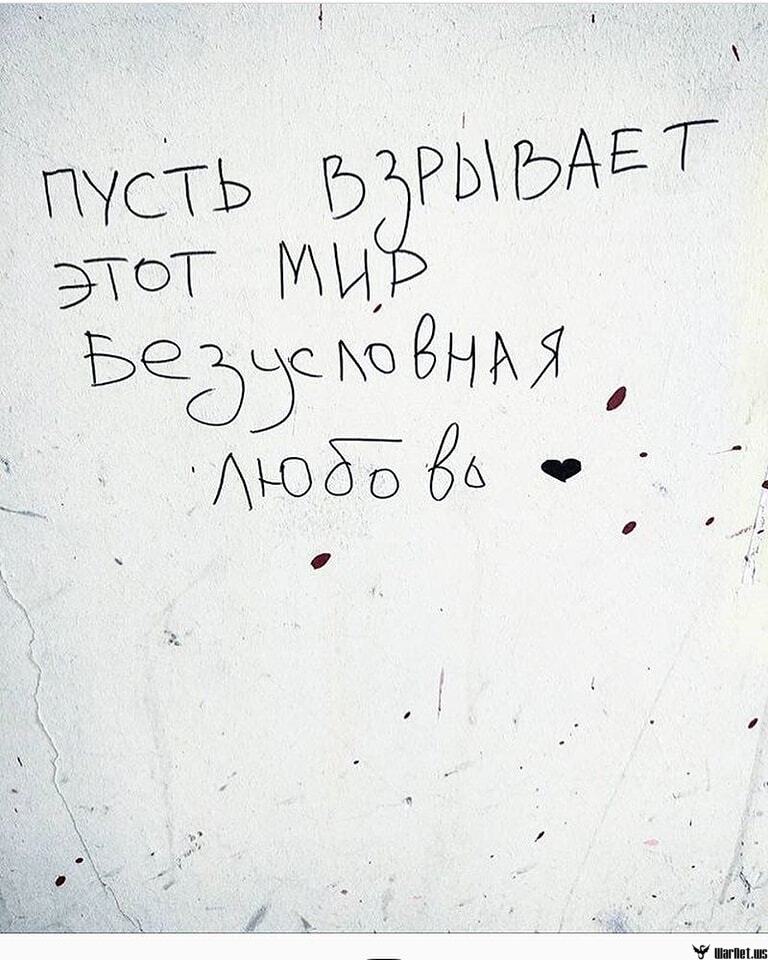 ПУСТЬ ВЗРЫВАЕТ
ЭТОТ МИР
БеЗусловНАЯ
Любовь ♥
WarNet.ws